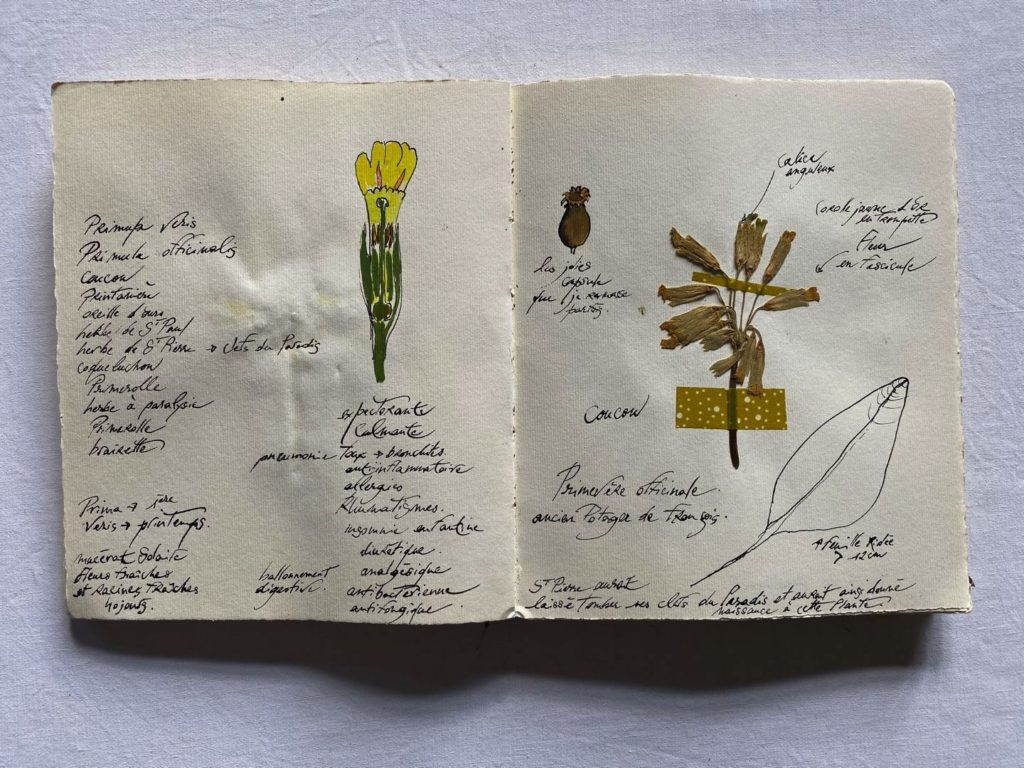 Primula veris
Primula officinalis
coucou
printanière
oreille d'ours
herbe de St Paul
herbe de St Pierre → clefs du Paradis
coqueluchon
Primerolle
herbe à paralysie
Primerolle
brairette
Prima → 1ère
veris → printemps.
macérat solaire
fleurs fraîches
et racines fraîches
40 jours.
expectorante
calmante
pneumonie Toux → bronchites.
antiinflammatoire
allergies
Rhumatismes.
insomnie enfantine
diurétique.
analgésique
antibactérienne
antifongique.
ballonnement
digestive.
calice
anguleux
les jolies
capsule
que je ramasse
parfois.
corole jaune d'Or
en trompette
Fleur
en fascicule
coucou
Primevère officinale.
ancien Potager de François.
Feuille Ridée
→ 12cm
St Pierre aurait
laissé tomber ses clefs du Paradis et aurait ainsi donné
naissance à cette Plante.